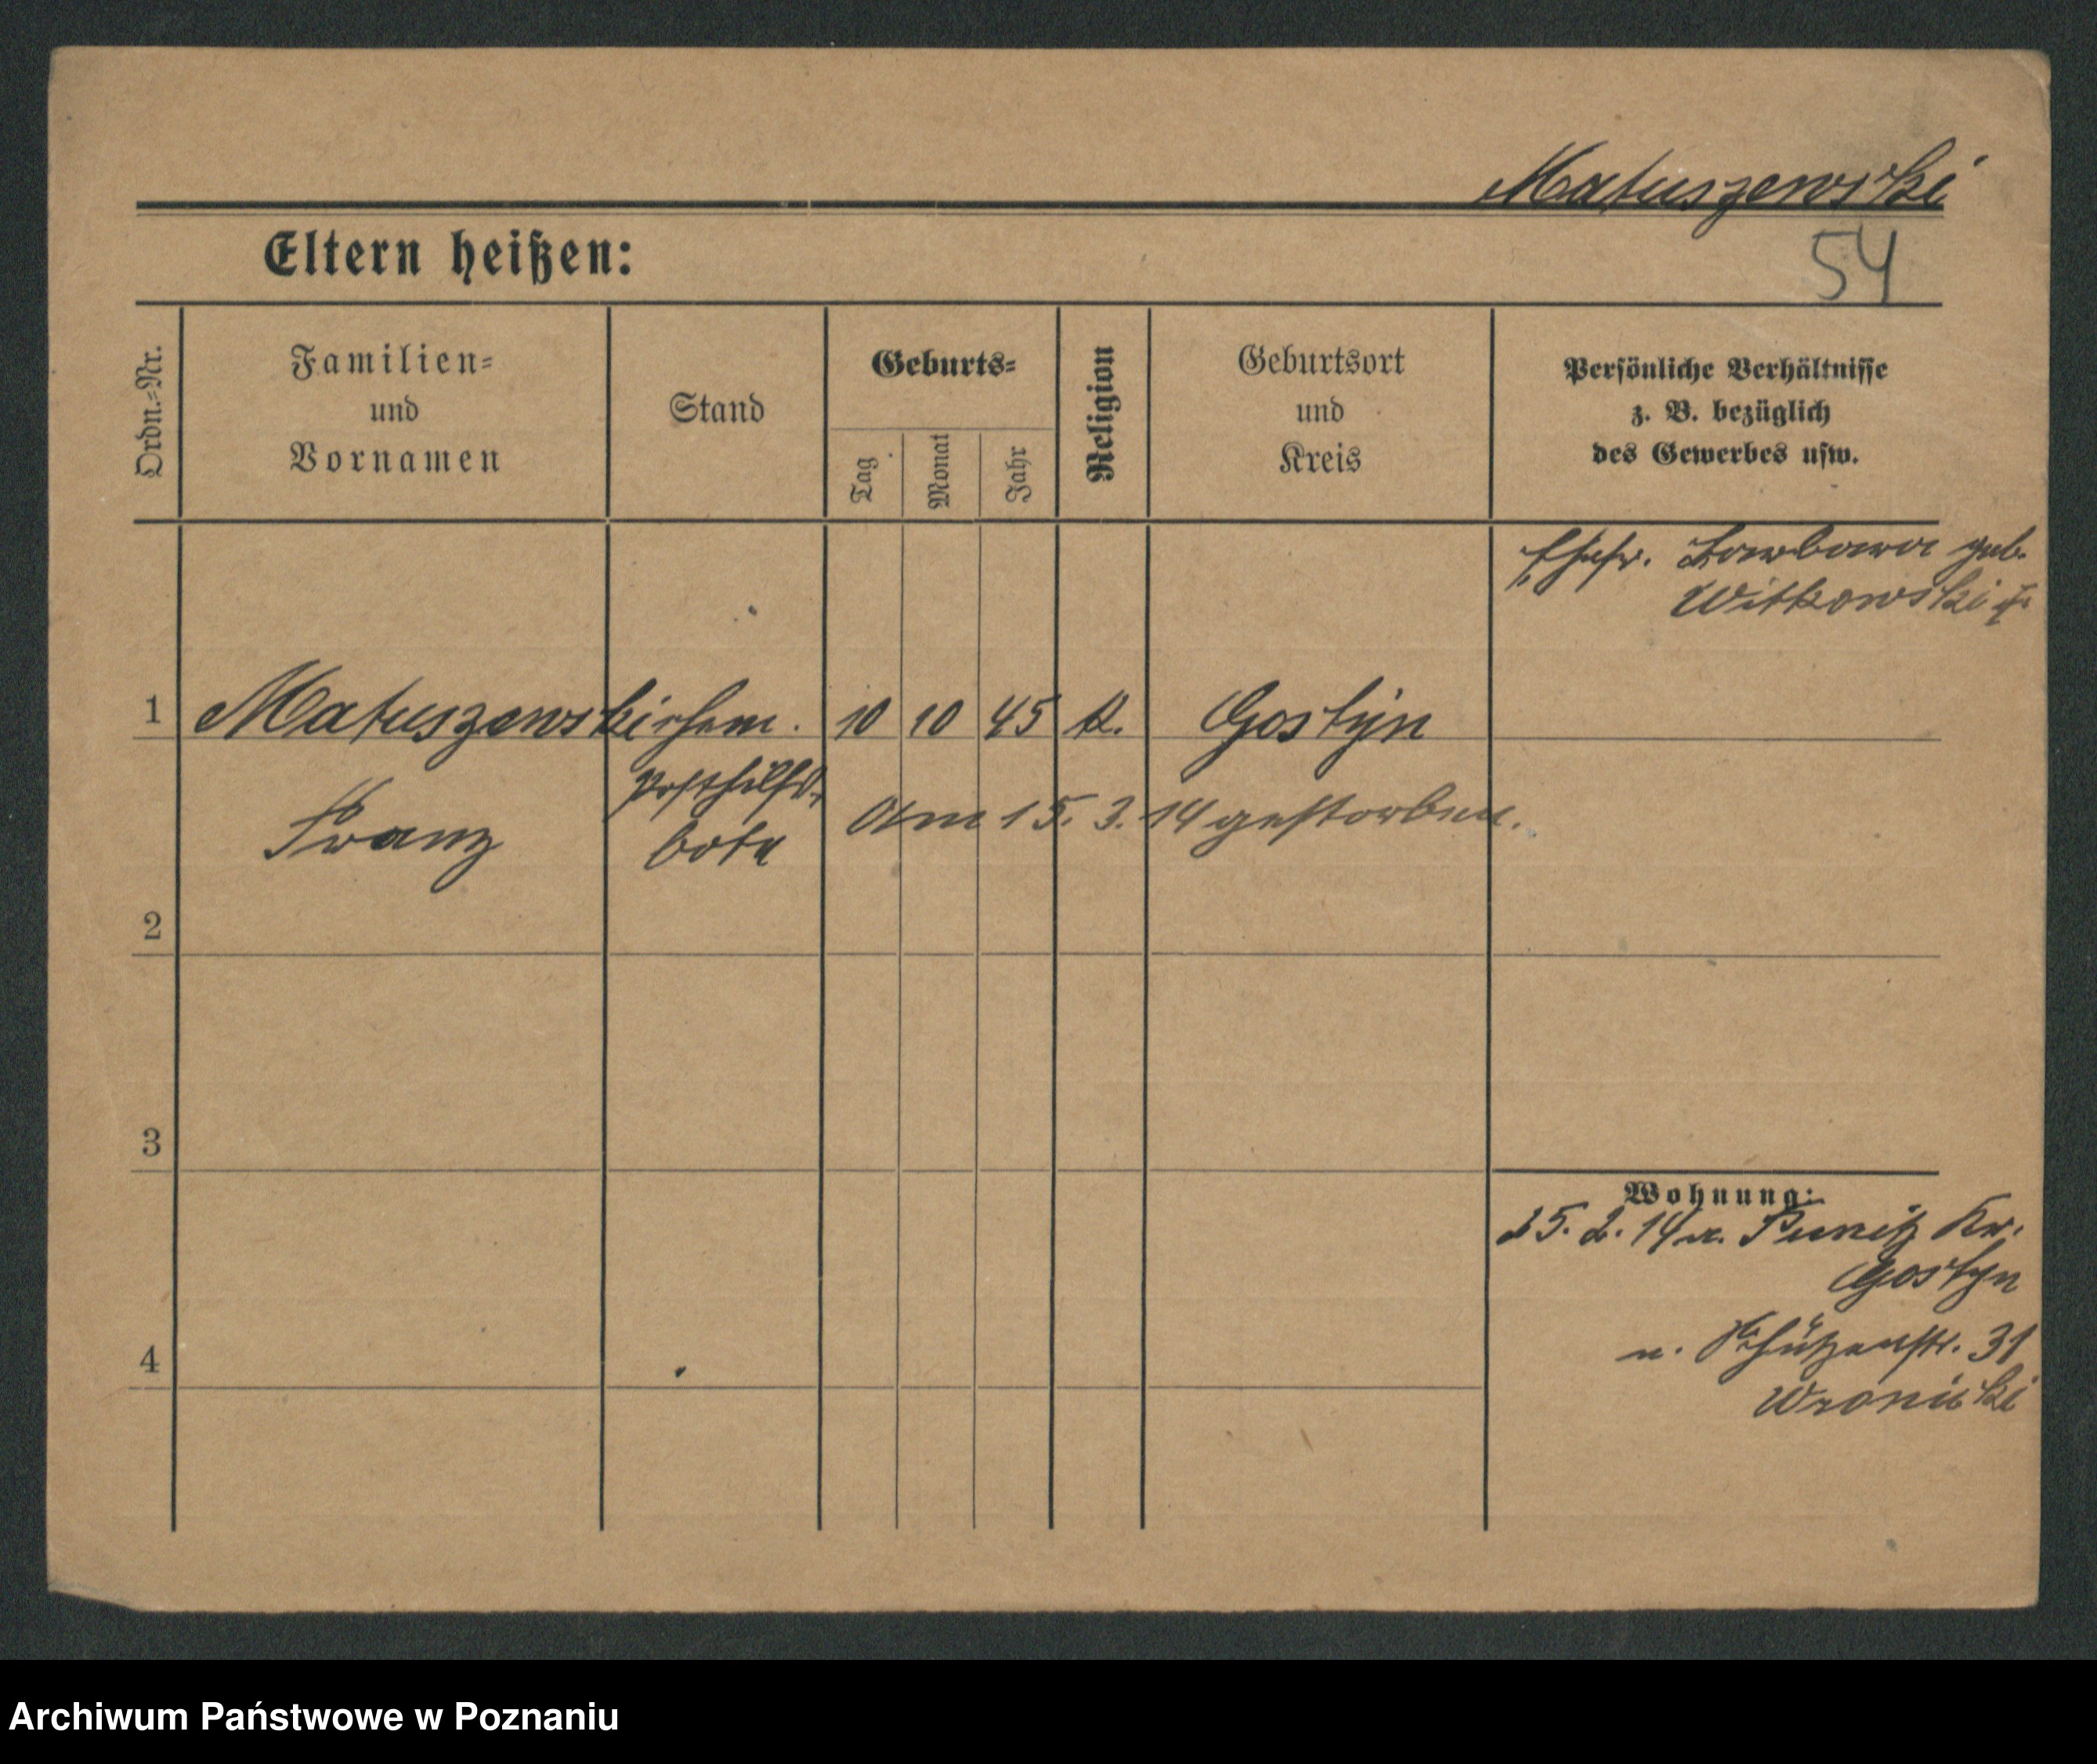 Matuszewski
54
Eltern heißen:
Ordn.-Nr.
Familien-
und
Vornamen
Stand
Geburts-
Tag
Monat
Jahr
Religion
Geburtsort
und
Kreis
Persönliche Verhältnisse
z. B. bezüglich
des Gewerbes usw.
Ehefr. Barbara geb.
Witkowski †
1 Matuszewski ehem. 10 10 45 K. Gostyn
Franz
Posthilfs-
bote
Am 15. 3. 14 gestorben.
2
3
4
Wohnung:
25. 2. 14 a. Punitz Kr.
Gostyn
n. Schützenstr. 31
Wronicki
Archiwum Państwowe w Poznaniu